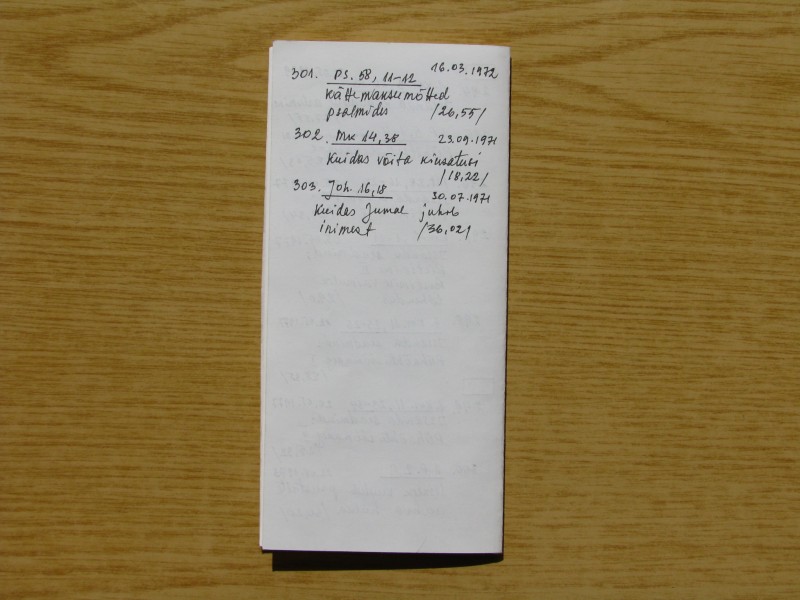 301. Ps. 58, 11-12 16.03.1972
Kättemaksumõtted
psalmides /26,55/
302. Mk 14,38 23.09.1971
Kuidas võita kiusatusi
/18,22/
303. Joh. 16,18 30.07.1971
Kuidas Jumal juhib
inimest /36,02/